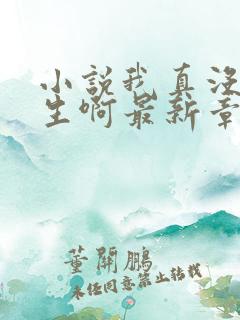 小説我真没
生啊最新章
董開鵬
未经同意禁止转载